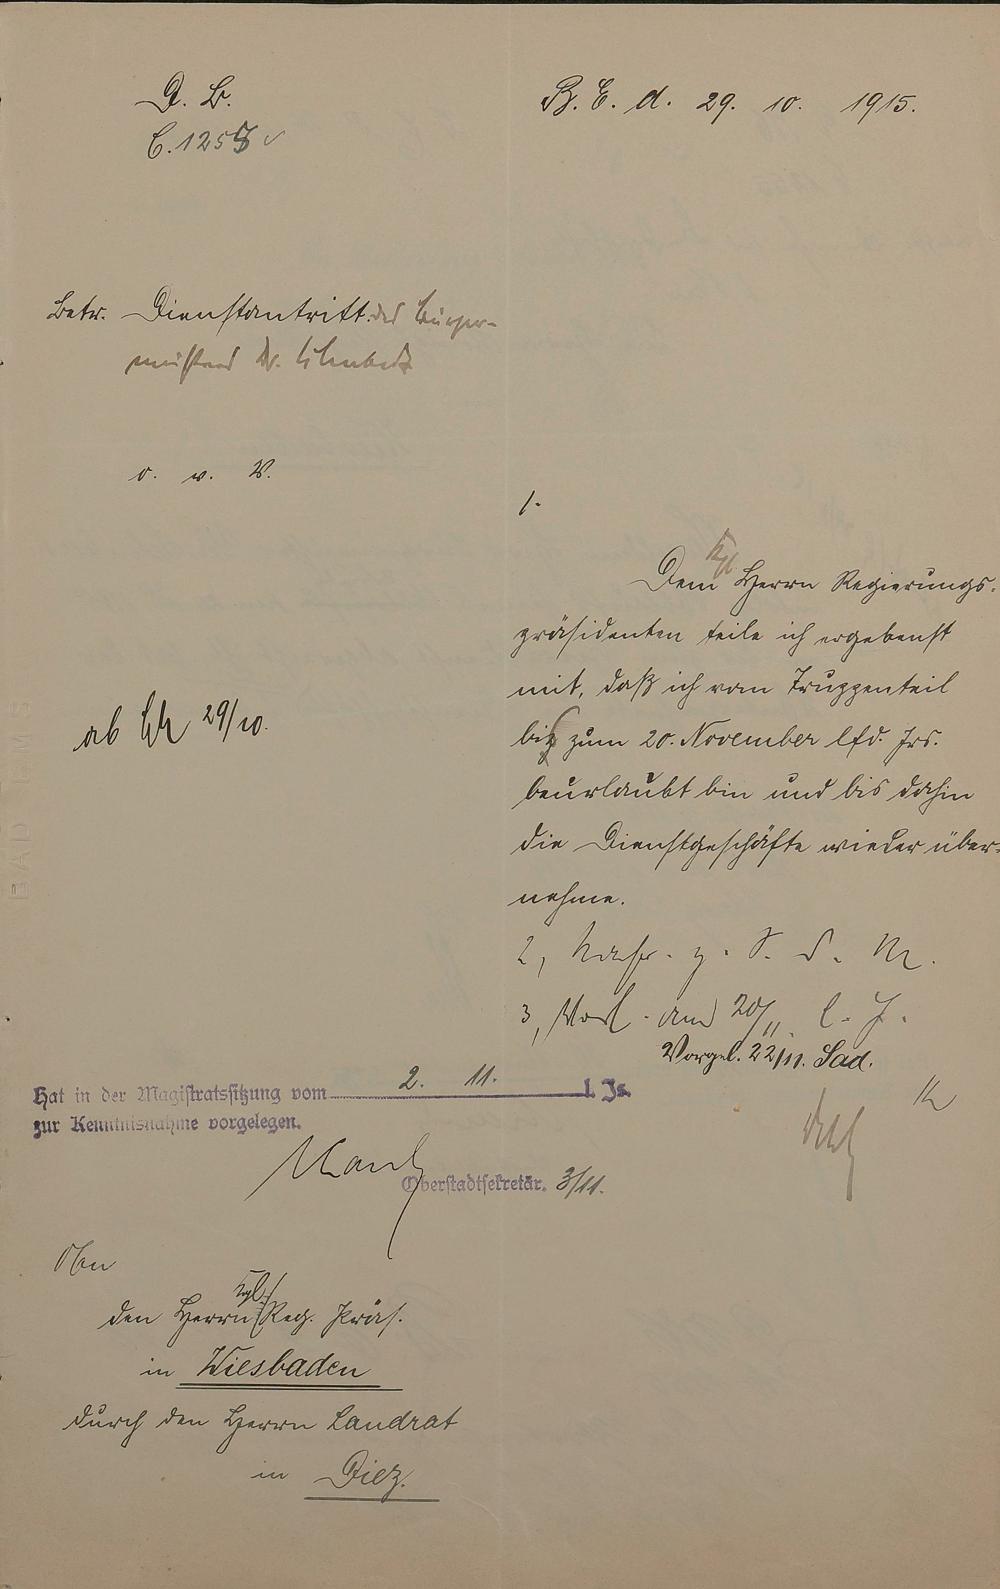 D. B.
C. 1255
B. E. d. 29. 10. 1915.
Betr. Dienstantritt des Bürger-
meisters Dr.
o. v. V.
1.
Kgl
Dem Herrn Regierungs-
präsidenten teile ich ergebenst
mit, daß ich vom Truppenteil
bis zum 20. November lfd. Jrs.
beurlaubt bin und bis dahin
die Dienstgeschäfte wieder über-
nehme.
ab 29/10.
2, Nachr. z. d. M.
3, Vorl. am 20/11. l. J.
Vorgel. 22/11.
Hat in der Magistratssitzung vom 2. 11. l. Js.
zur Kenntnisnahme vorgelegen.
Oberstadtsekretär. 3/11.
An
Kgl.
den Herrn Reg. Präs.
in Wiesbaden
durch den Herrn Landrat
in Diez.
BAD EMS